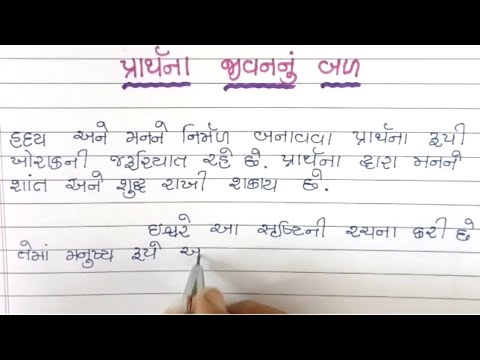 પ્રાર્થના જીવનનું બળ
હૃદય અને મનને નિર્મળ બનાવવા પ્રાર્થના રૂપી
ખોરાકની જરૂરિયાત રહે છે. પ્રાર્થના દ્વારા મનને
શાંત અને શુદ્ધ રાખી શકાય છે.
ઈશ્વરે આ સૃષ્ટિની રચના કરી છે
તેમાં મનુષ્ય રૂપે અ